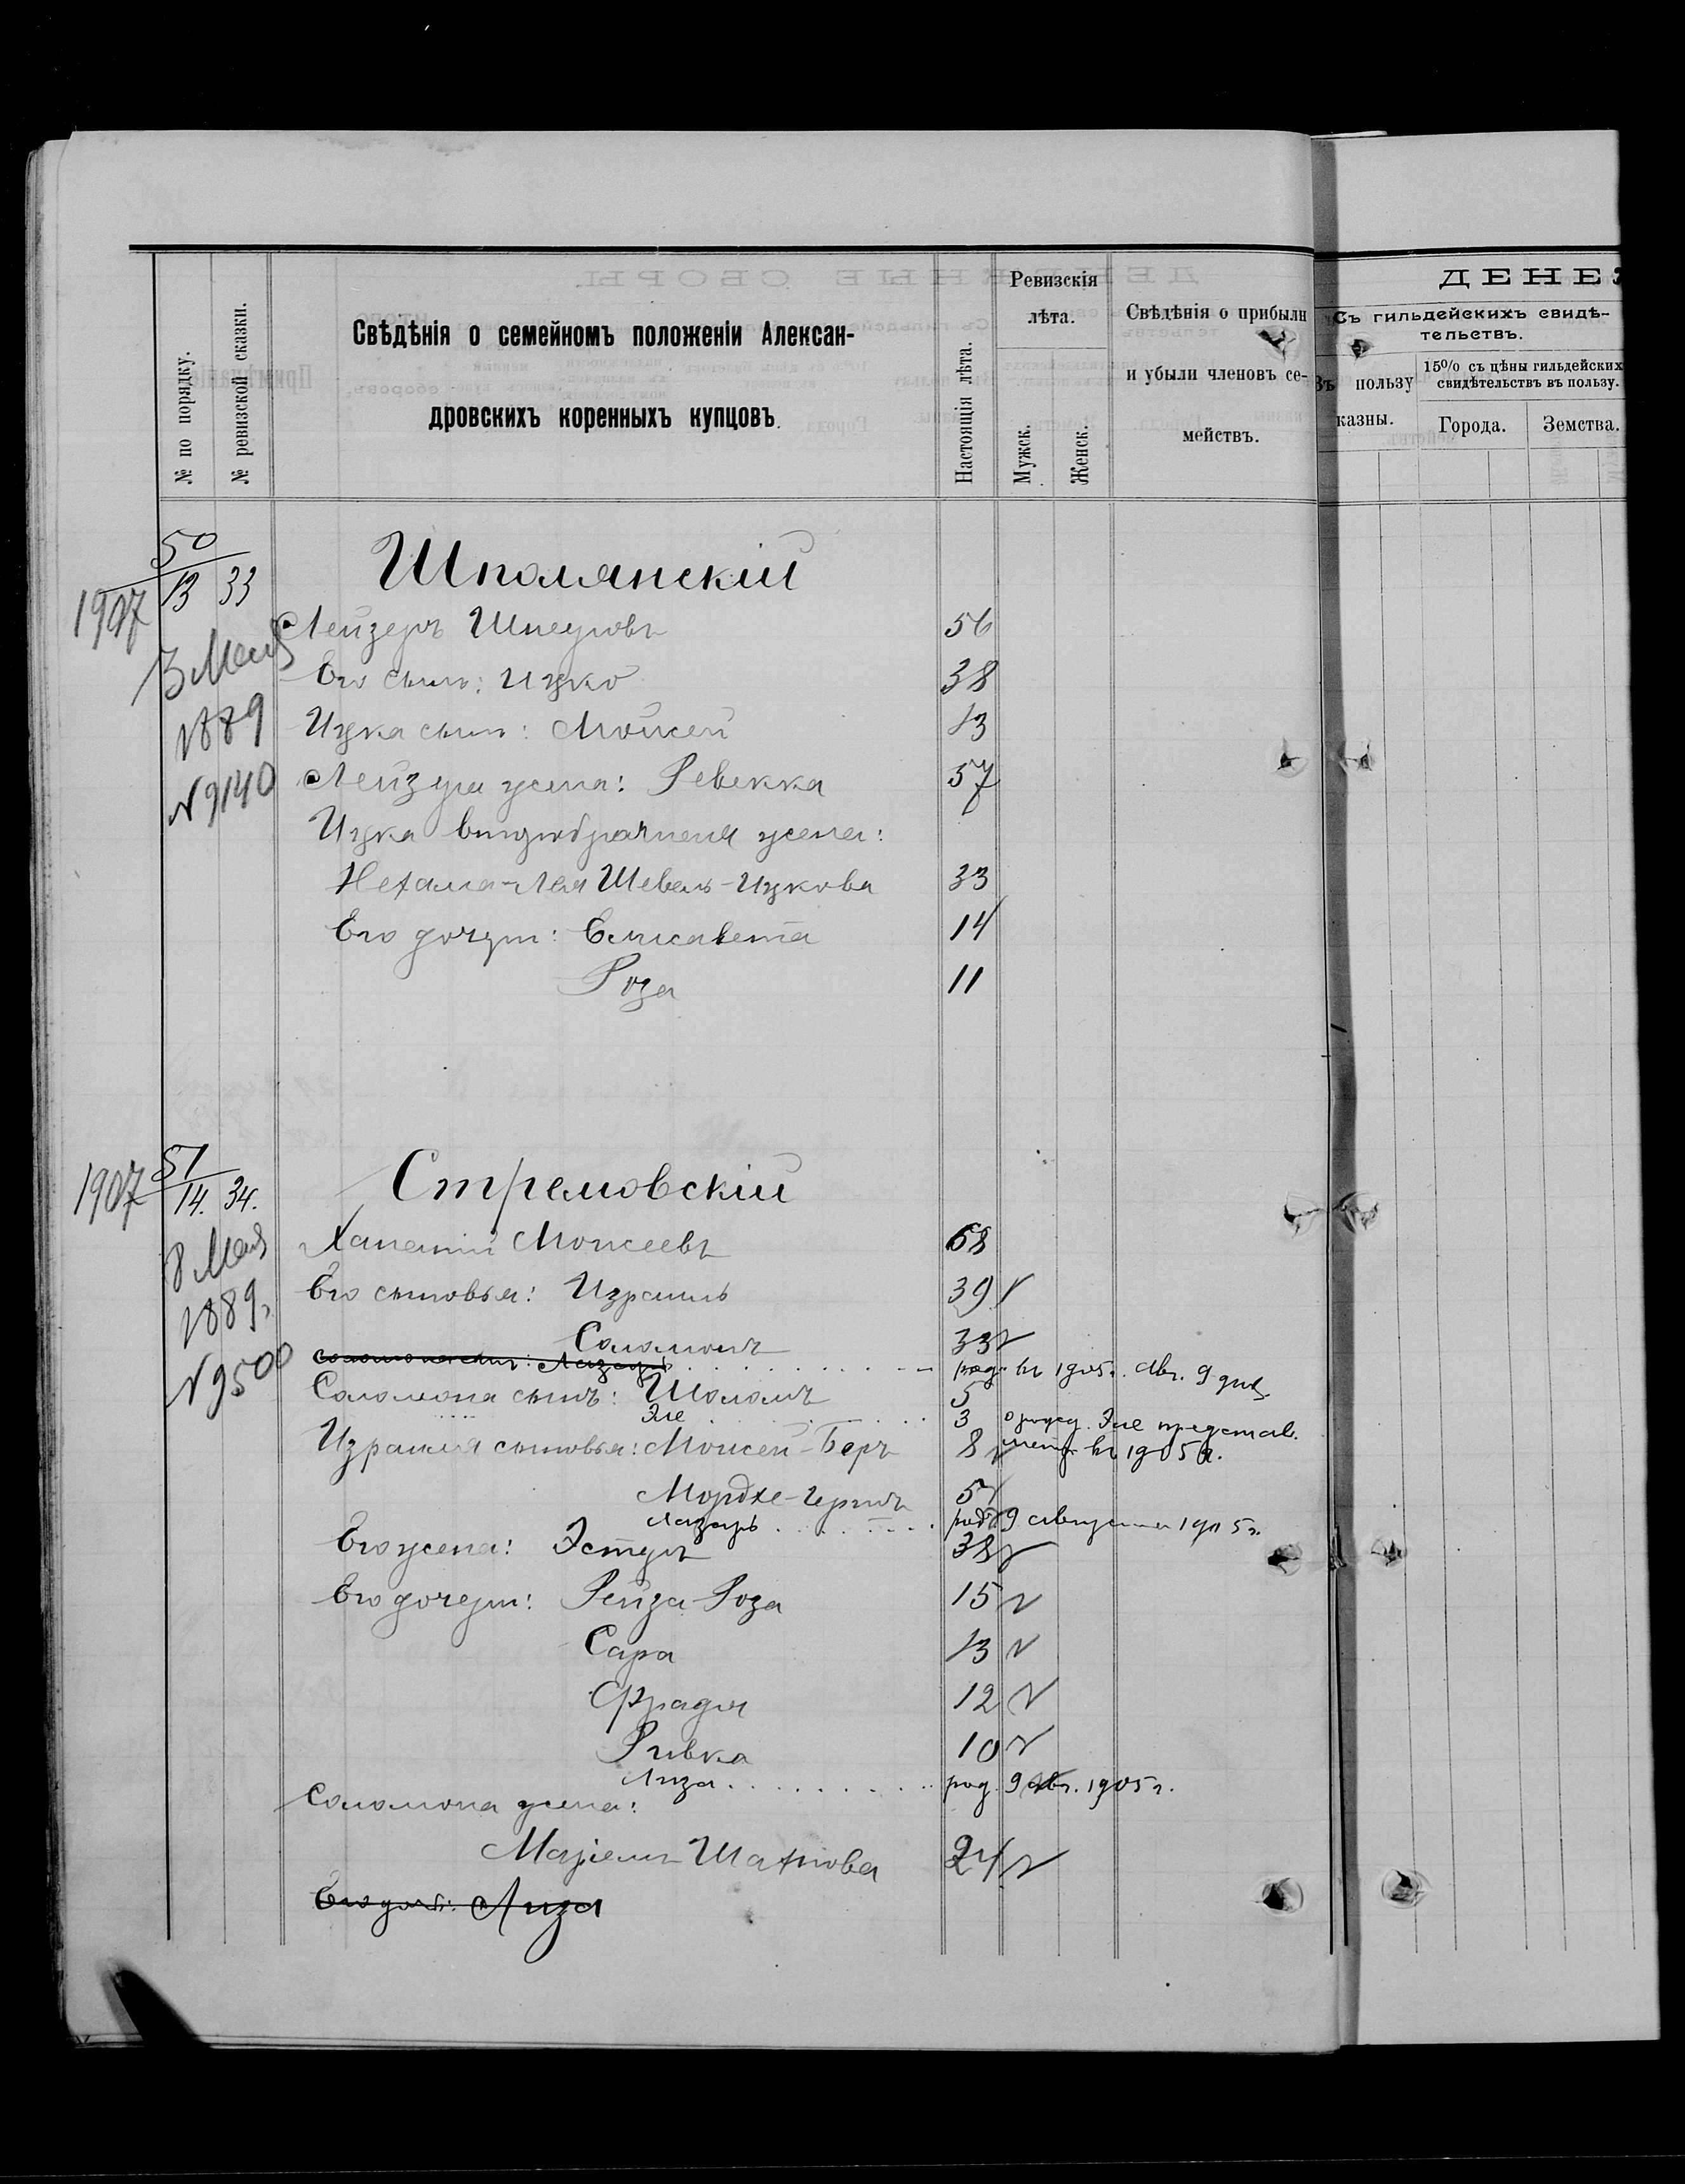 № по порядку.
№ ревизской сказки.
Свѣдѣнія о семейномъ положеніи Алексан-
дровскихъ коренныхъ купцовъ.
Настоящія лѣта.
Ревизскія
лѣта.
Мужск.
Женск.
Свѣдѣнія о прибыли
и убыли членовъ се-
мействъ.
ДЕНЕЖ
Съ гильдейскихъ свидѣ-
тельствъ.
Въ пользу
казны.
15% съ цѣны гильдейских
свидѣтельствъ въ пользу.
Города.
Земства.
50
1907 13 33 Шполянскій
Лейзеръ 56
3 Мая
Его сынъ: Ицко 38
1889
Ицка сынъ: Мойсей 13
№ 9140
Лейзера жена: Ревекка 57
Ицка жена:
Нехама-Лея Шевель-Ицкова 33
Его дочери: Елисавета 14
Роза 11
51
1907 14. 34. Стремовскій
Моисеевъ 68
8 Мая
Его сыновья: Израиль 39
1889 г.
Соломонъ 33
Соломона сынъ: Лазарь род. въ 1905 г. Авг. 9 дня
№ 9500
Соломона сынъ: Шоломъ 5
Эле 3 о рожд. Эле представ.
метр. въ 1905 г.
Израиля сыновья: Моисей-Беръ 8
Мордхе-Гершъ 5
Лазарь род. 9 августа 1905 г.
Его жена: Эстеръ 38
Его дочери: Рейза-Роза 15
Сара 13
Фрадя 12
Ривка 10
Лиза род. 9 авг. 1905 г.
Соломона жена:
Маріемъ 24
Его доч.: Лиза